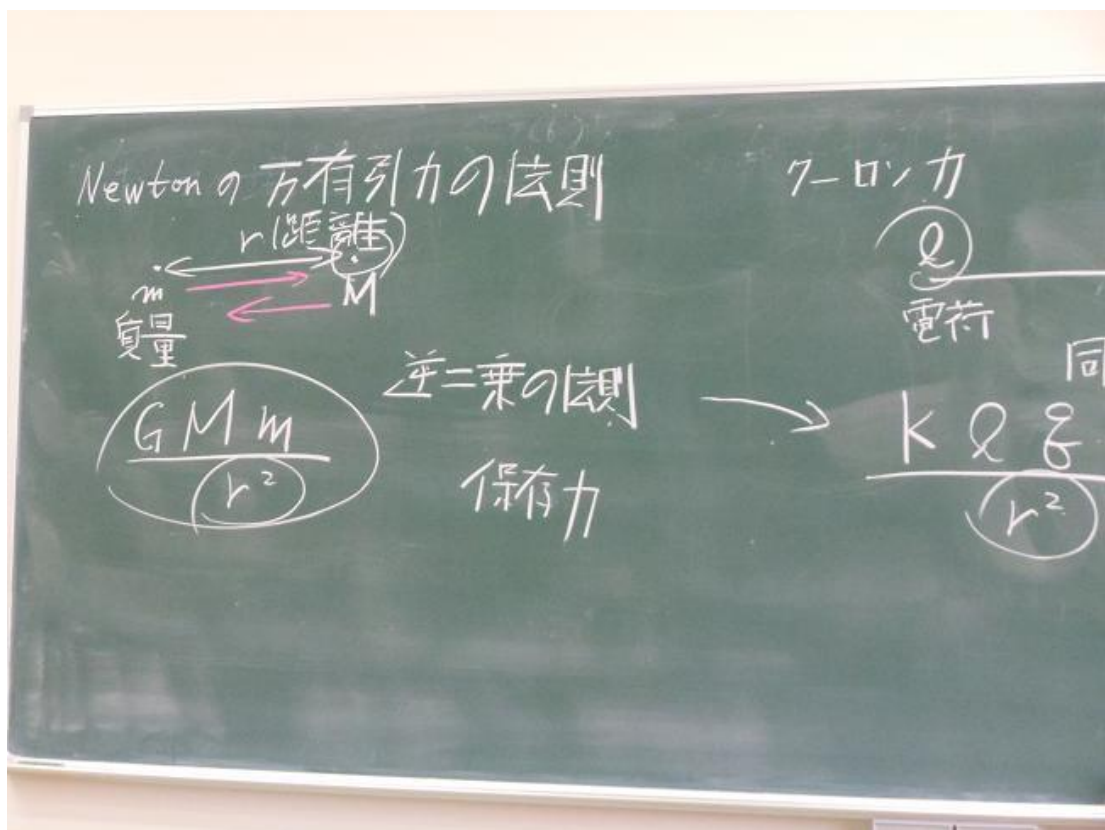 Newtonの万有引力の法則
r(距離)
m
M
質量
GMm
r²
逆二乗の法則
保存力
クーロン力
Q
電荷
同
k Q q
r²